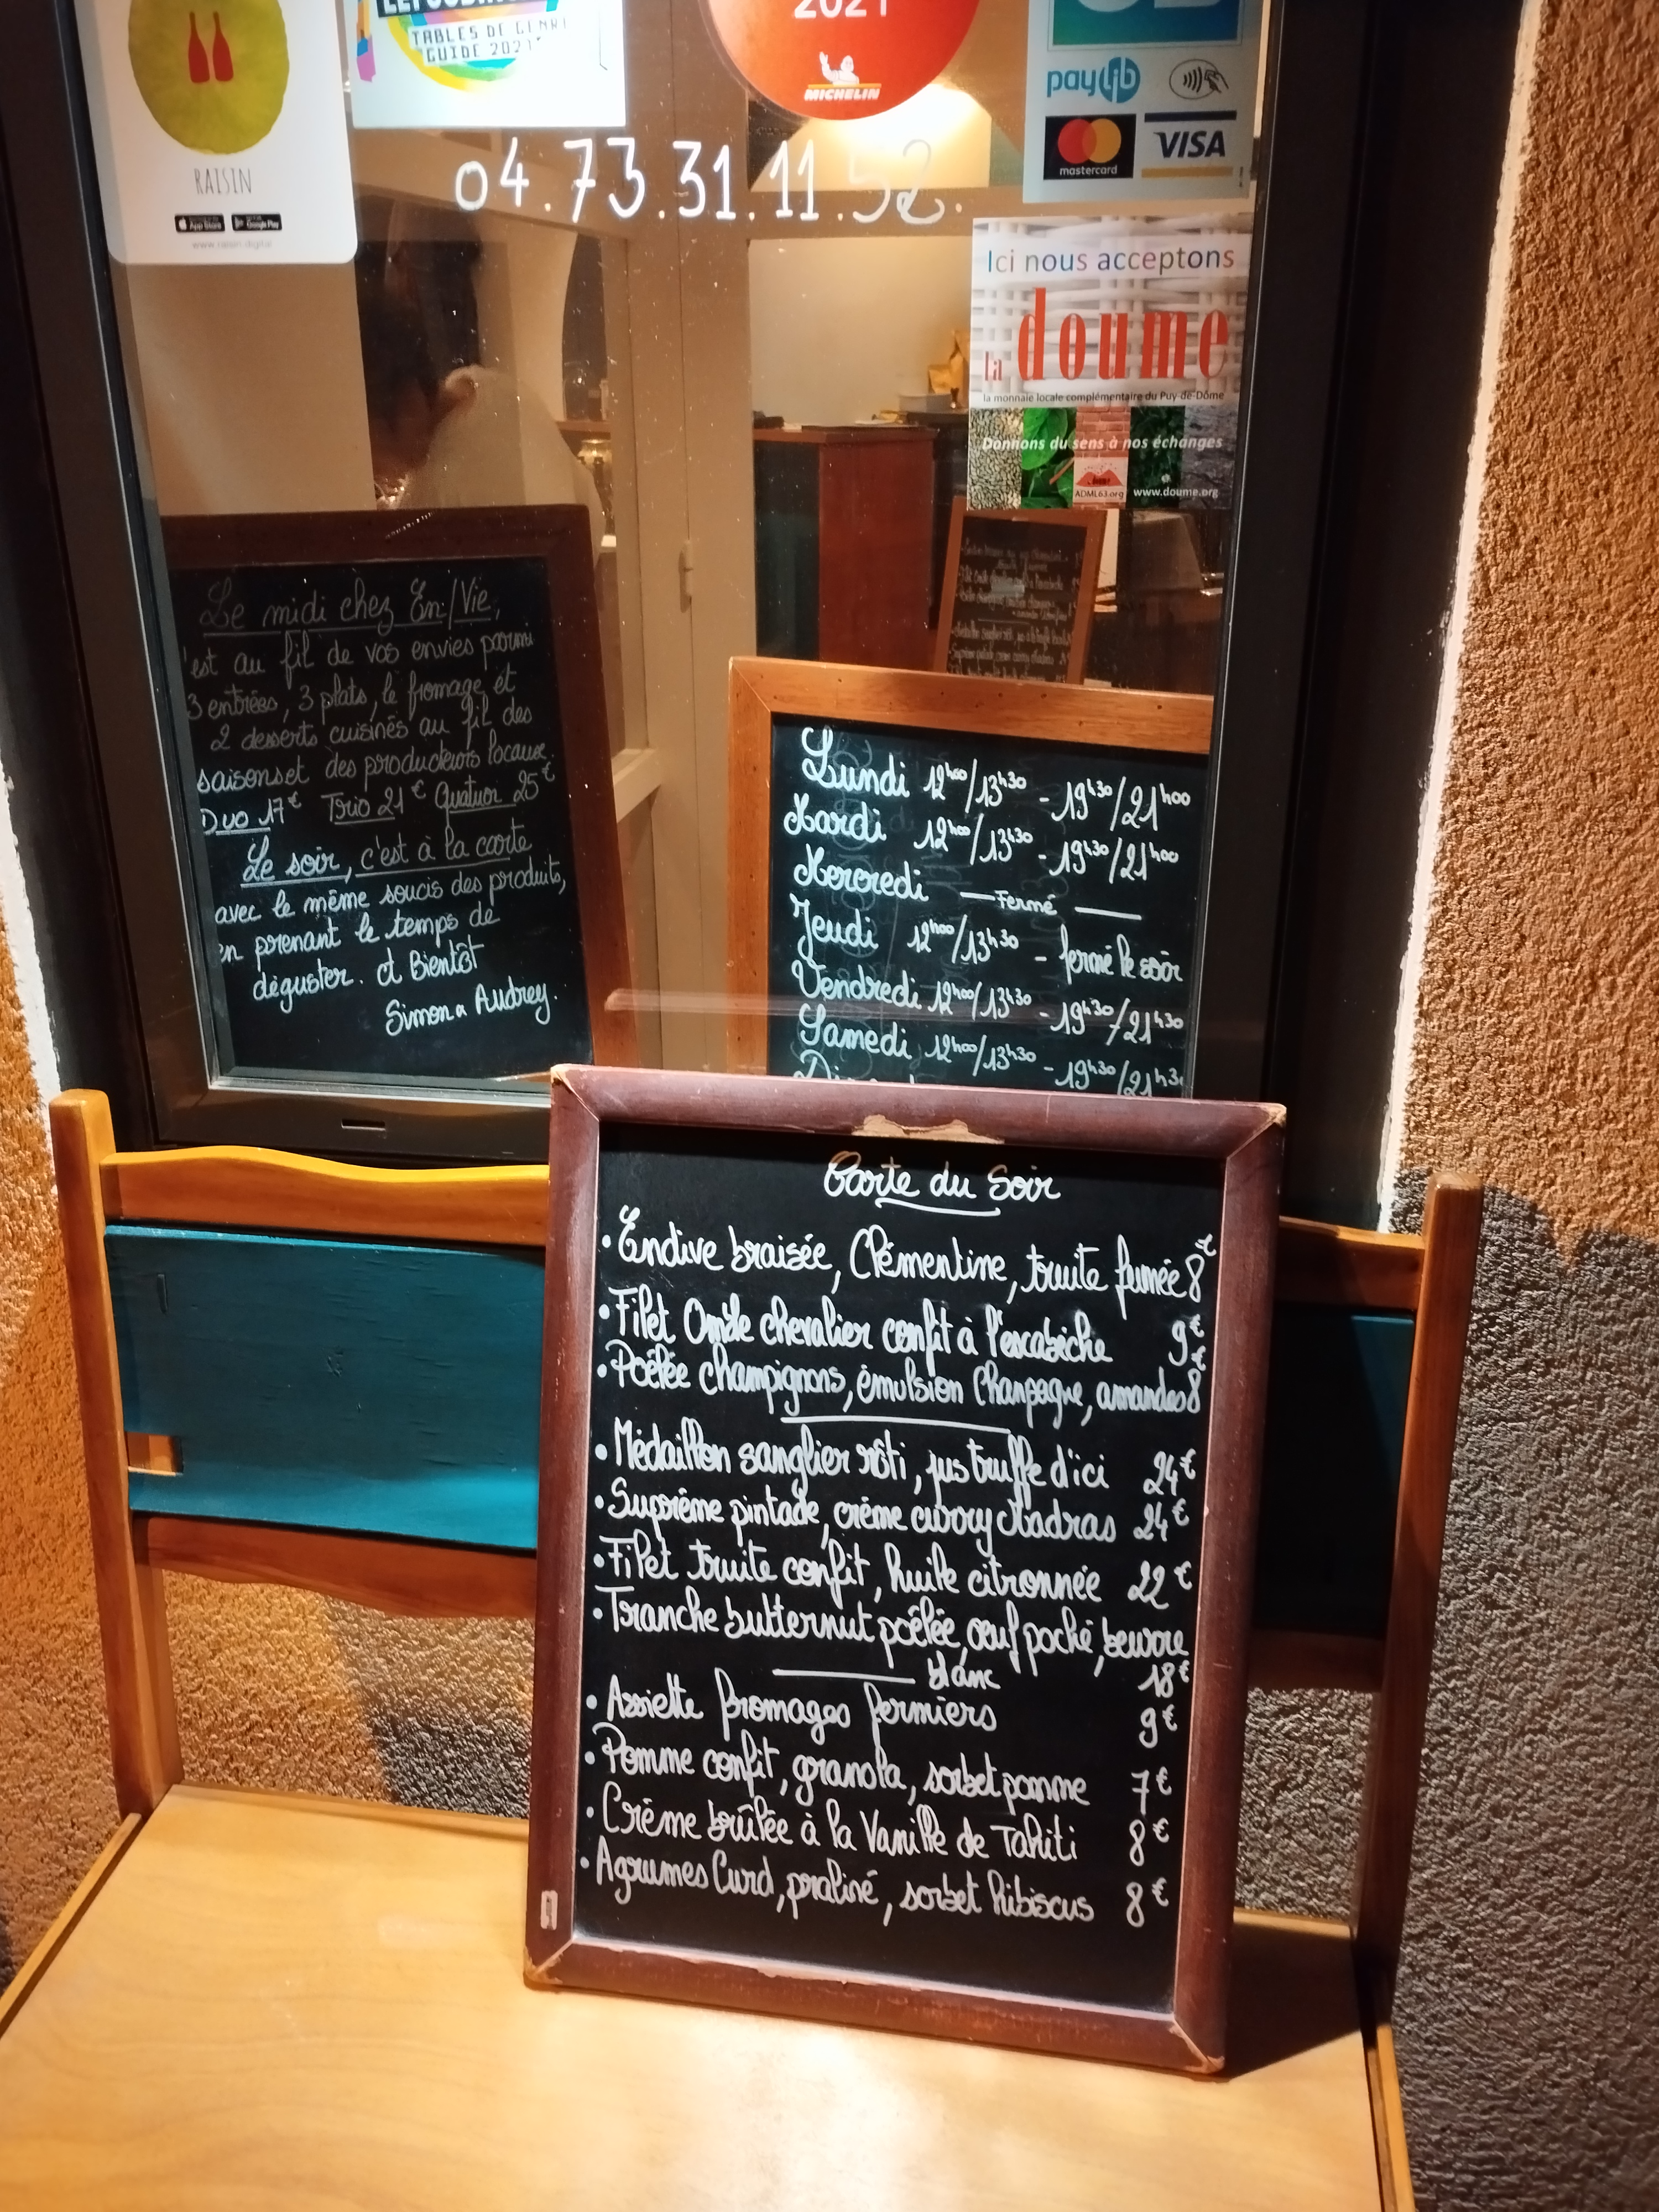 RAISIN
App Store
Google Play
www.raisin.digital
TABLES DE
GUIDE 2021
2021
MICHELIN
payLib
mastercard
VISA
04.73.31.11.52.
Ici nous acceptons
la doume
la monnaie locale complémentaire du Puy-de-Dôme
Donnons du sens à nos échanges
doume
ADML63.org
www.doume.org
Le midi chez En/Vie,
'est au fil de vos envies parmi
3 entrées, 3 plats, le fromage et
2 desserts cuisinés au fil des
saisons et des producteurs locaux.
Duo 17€ Trio 21€ Quatuor 25€
Le soir, c'est à la carte
avec le même soucis des produits,
en prenant le temps de
déguster. A Bientôt
Simon & Audrey.
Lundi 12h00/13h30 - 19h30/21h00
Mardi 12h00/13h30 - 19h30/21h00
Mercredi — Fermé —
Jeudi 12h00/13h30 - fermé le soir
Vendredi 12h00/13h30 - 19h30/21h30
Samedi 12h00/13h30 - 19h30/21h30
Carte du Soir
• Endive braisée, Clémentine, truite fumée 8€
• Filet Omble chevalier confit à l'escabèche 9€
• Poêlée champignons, émulsion Champagne, amandes 8€
• Médaillon sanglier rôti, jus truffe d'ici 24€
• Suprême pintade, crème curry Madras 24€
• Filet truite confit, huile citronnée 22€
• Tranche butternut poêlée, oeuf poché, beurre
blanc 18€
• Assiette fromages fermiers 9€
• Pomme confit, granola, sorbet pomme 7€
• Crème brûlée à la Vanille de Tahiti 8€
• Agrumes Curd, praliné, sorbet hibiscus 8€